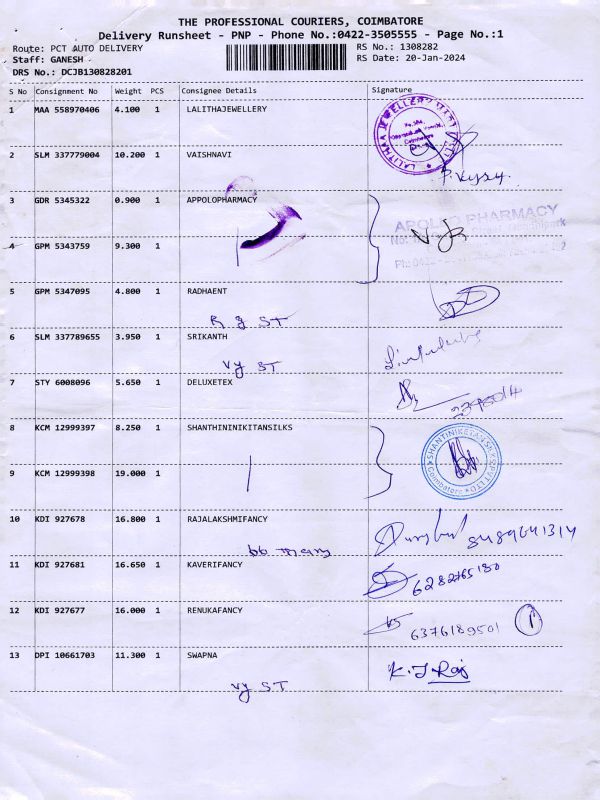 THE PROFESSIONAL COURIERS, COIMBATORE
Delivery Runsheet - PNP - Phone No.:0422-3505555 - Page No.:1
Route: PCT AUTO DELIVERY RS No.: 1308282
Staff: GANESH RS Date: 20-Jan-2024
DRS No.: DCJB130828201
S No Consignment No Weight PCS Consignee Details Signature
1 MAA 558970406 4.100 1 LALITHAJEWELLERY
2 SLM 337779004 10.200 1 VAISHNAVI
3 GDR 5345322 0.900 1 APPOLOPHARMACY
APOLLO PHARMACY
4 GPM 5343759 9.300 1
5 GPM 5347095 4.800 1 RADHAENT
R g ST
6 SLM 337789655 3.950 1 SRIKANTH
Vy ST
7 STY 6008096 5.650 1 DELUXETEX
8 KCM 12999397 8.250 1 SHANTHININIKITANSILKS
SHANTINIKETAN SILKS PVT LTD
Coimbatore
9 KCM 12999398 19.000 1
10 KDI 927678 16.800 1 RAJALAKSHMIFANCY
11 KDI 927681 16.650 1 KAVERIFANCY
6282765180
12 KDI 927677 16.000 1 RENUKAFANCY
6376189501
13 DPI 10661703 11.300 1 SWAPNA
K. J Raj
Vy ST